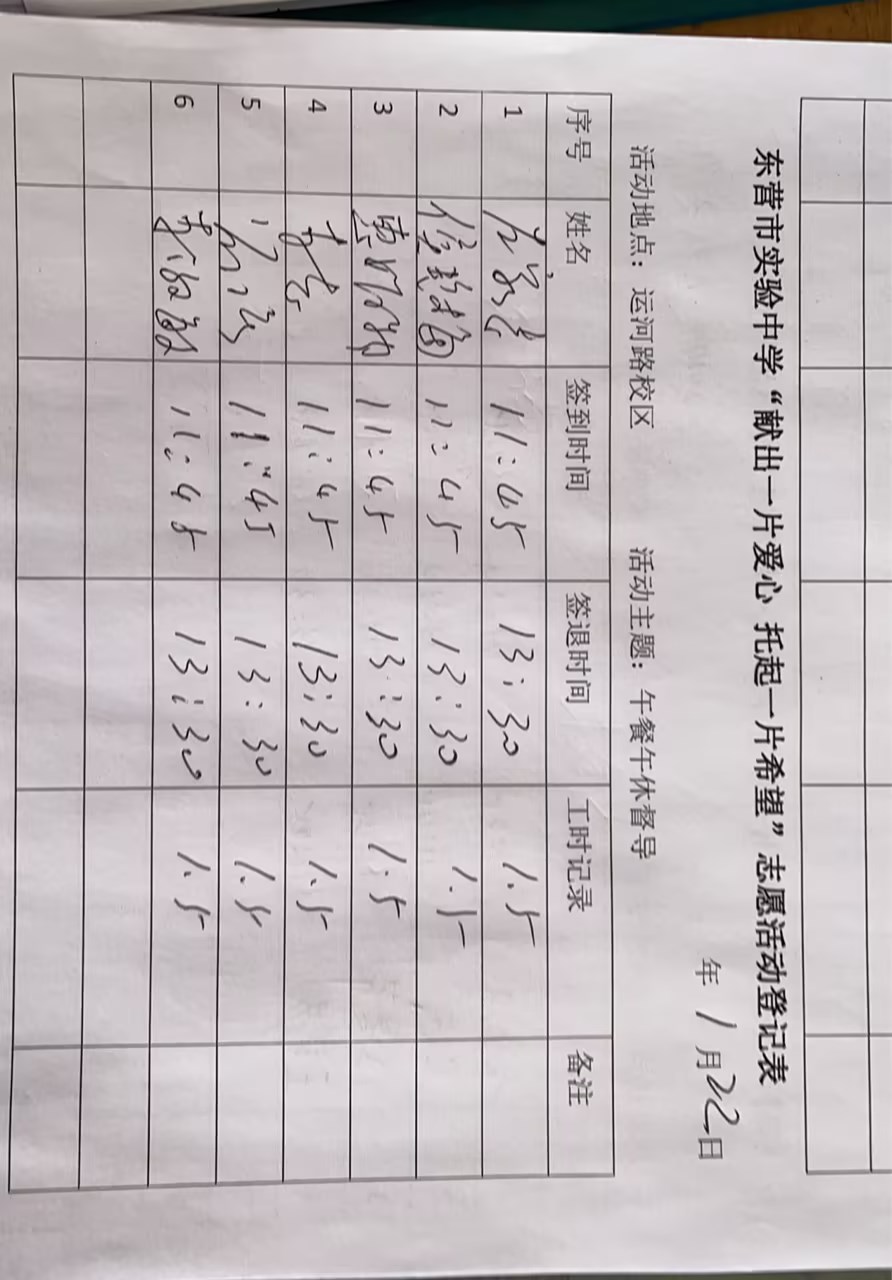 东营市实验中学“献出一片爱心 托起一片希望”志愿活动登记表
年 1月22日
活动地点：运河路校区 活动主题：午餐午休督导
序号 姓名 签到时间 签退时间 工时记录 备注
1 11:45 13:30 1.5
2 11:45 13:30 1.5
3 11:45 13:30 1.5
4 11:45 13:30 1.5
5 11:45 13:30 1.5
6 11:45 13:30 1.5